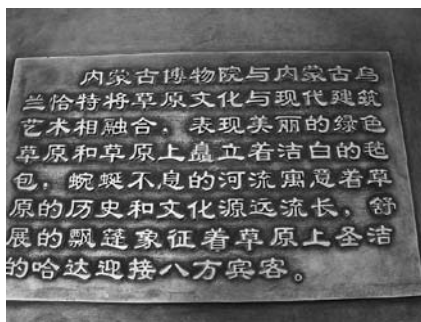 内蒙古博物院与内蒙古乌
兰恰特将草原文化与现代建筑
艺术相融合，表现美丽的绿色
草原和草原上矗立着洁白的毡
包，蜿蜒不息的河流寓意着草
原的历史和文化源远流长，舒
展的飘篷象征着草原上圣洁
的哈达迎接八方宾客。